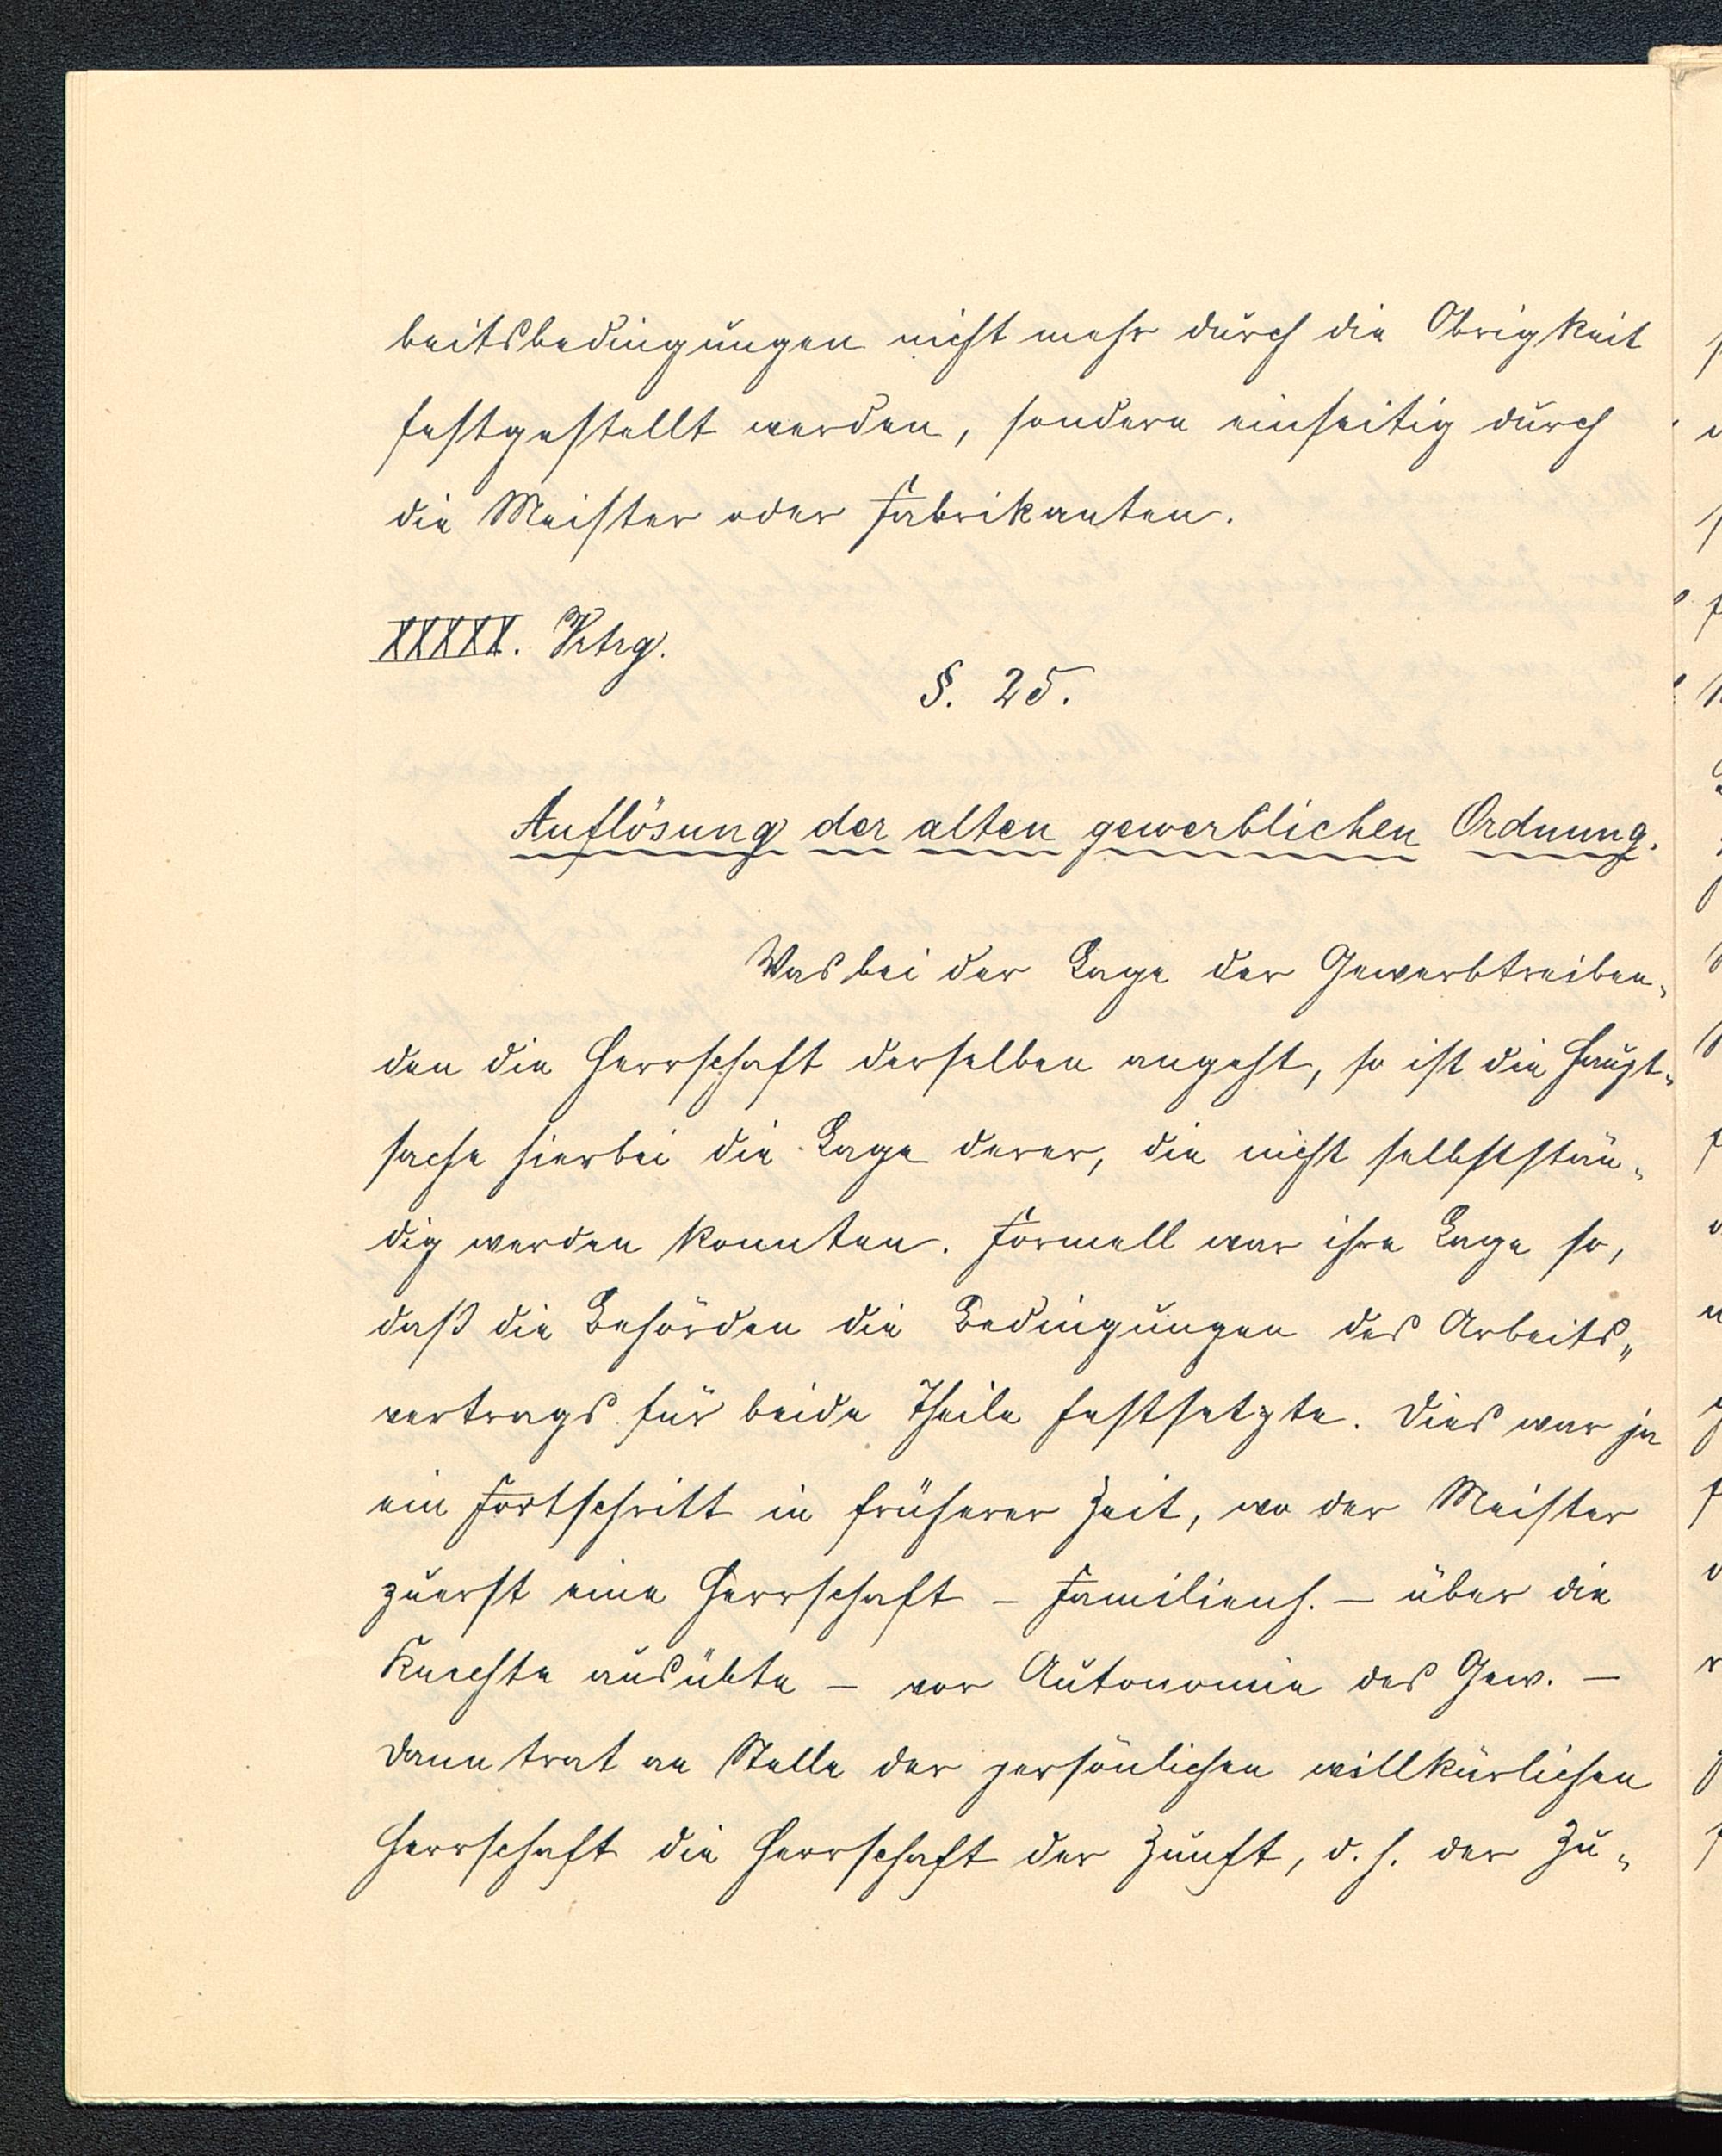 beitsbedingungen nicht mehr durch die Obrigkeit
festgestellt werden, sondern einseitig durch
die Meister oder Fabrikanten.
XXXXX. Vrtrg.
§. 25.
Auflösung der alten gewerblichen Ordnung.
Was bei der Lage der Gewerbtreiben-
den die Herrschaft derselben angeht, so ist die Haupt-
sache hierbei die Lage derer, die nicht selbststän-
dig werden konnten. Formell war ihre Lage so,
daß die Behörden die Bedingungen des Arbeits-
vertrags für beide Theile festsetzte. Dies war ja
ein Fortschritt in früherer Zeit, wo der Meister
zuerst eine Herrschaft – Familienh. – über die
Knechte ausübte – vor Autonomie des Gew. –
Dann trat an Stelle der persönlichen willkürlichen
Herrschaft die Herrschaft der Zunft, d. h. der Zu-